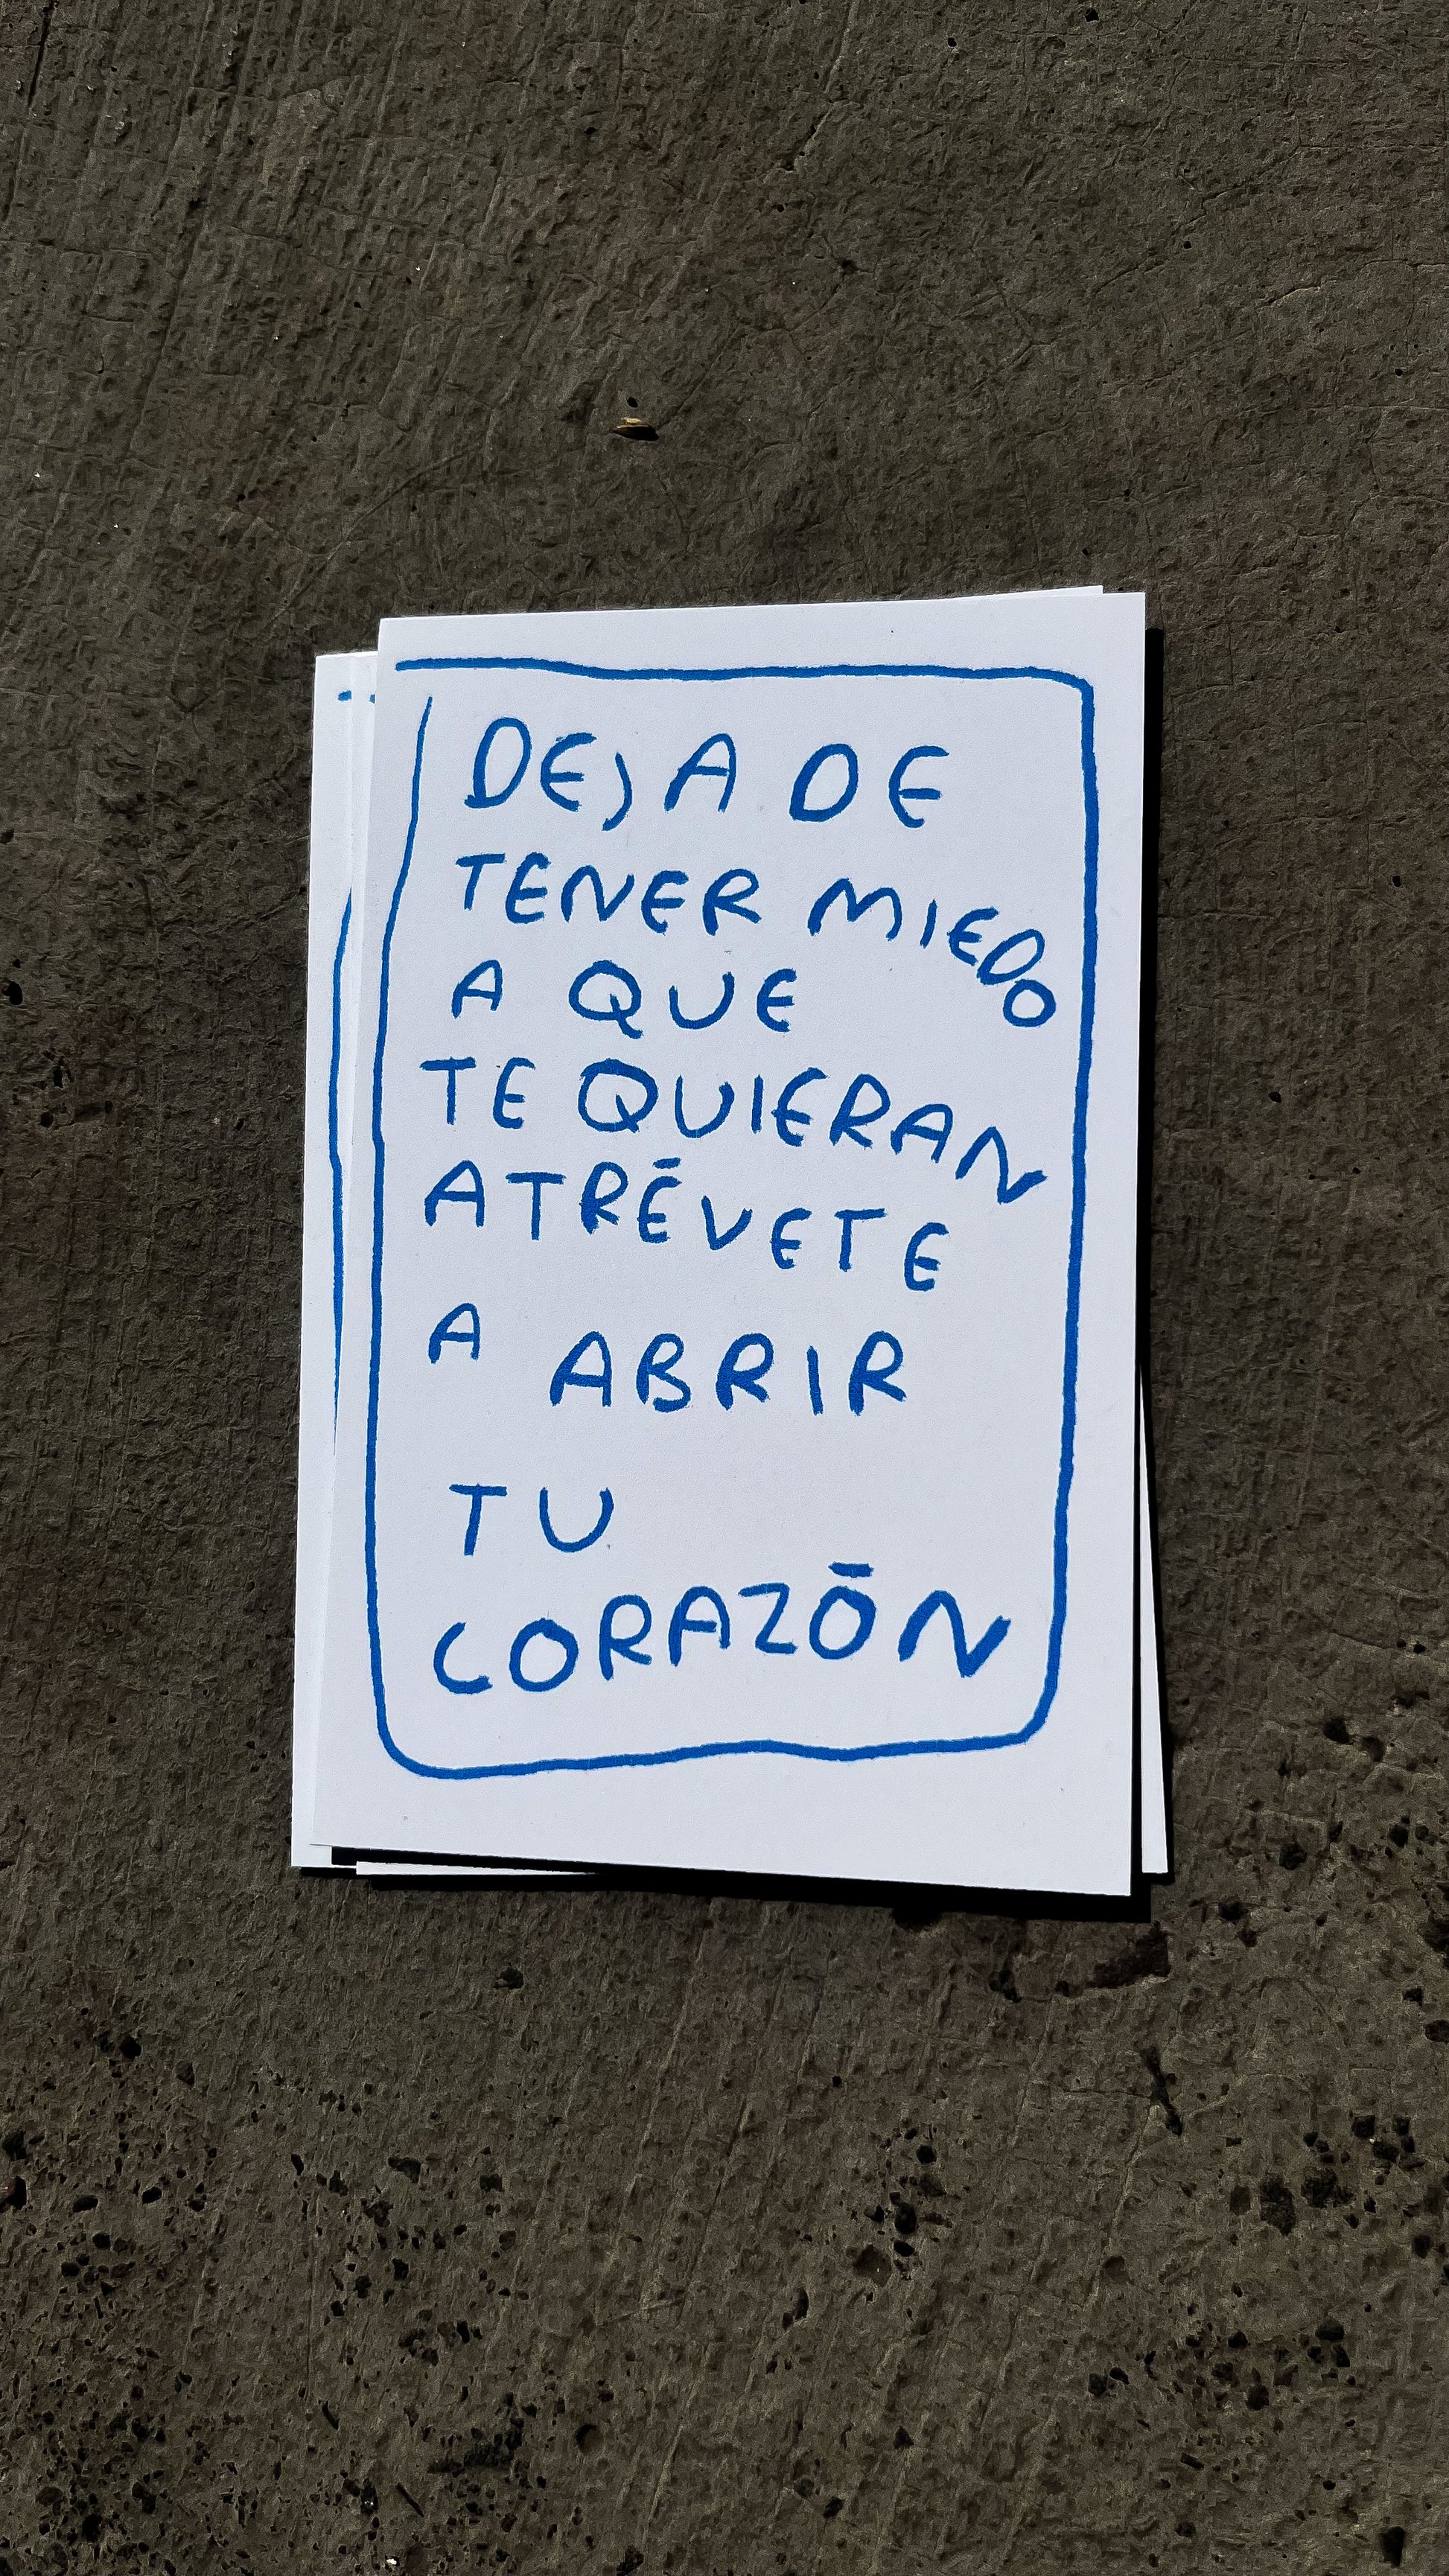 DEJA DE
TENER MIEDO
A QUE
TE QUIERAN
ATRÉVETE
A ABRIR
TU
CORAZÓN